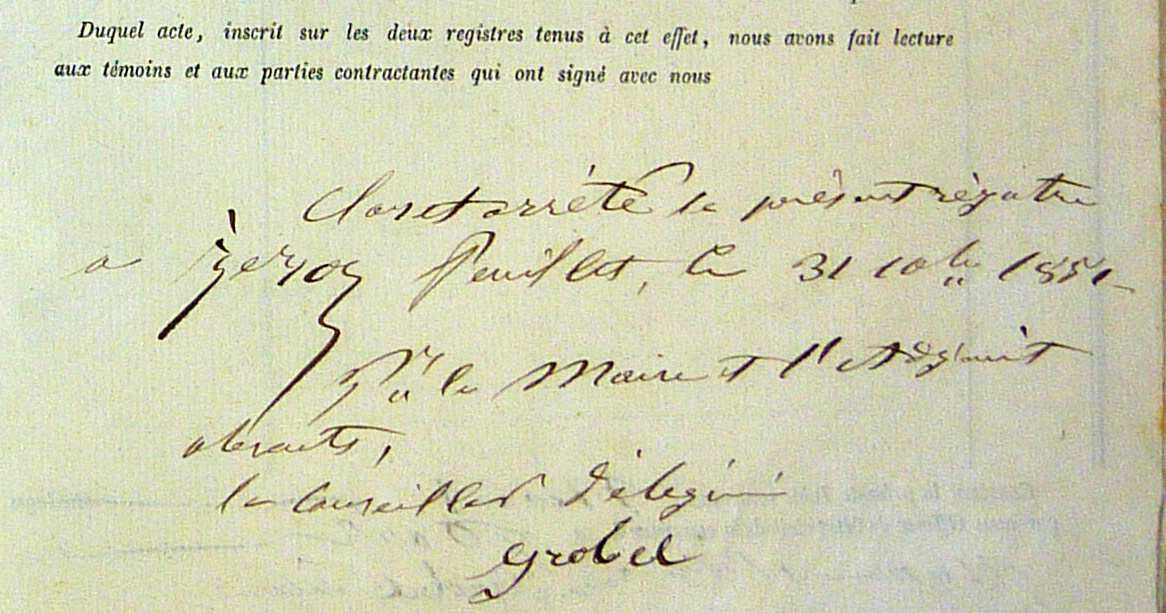 Duquel acte, inscrit sur les deux registres tenus à cet effet, nous avons fait lecture
aux témoins et aux parties contractantes qui ont signé avec nous
Clos et arrêté le présent régistre
a feuillet, le 31 10bre 185
Pr le Maire et l'adjoint
absents,
le Conseiller Délégué
Grobel